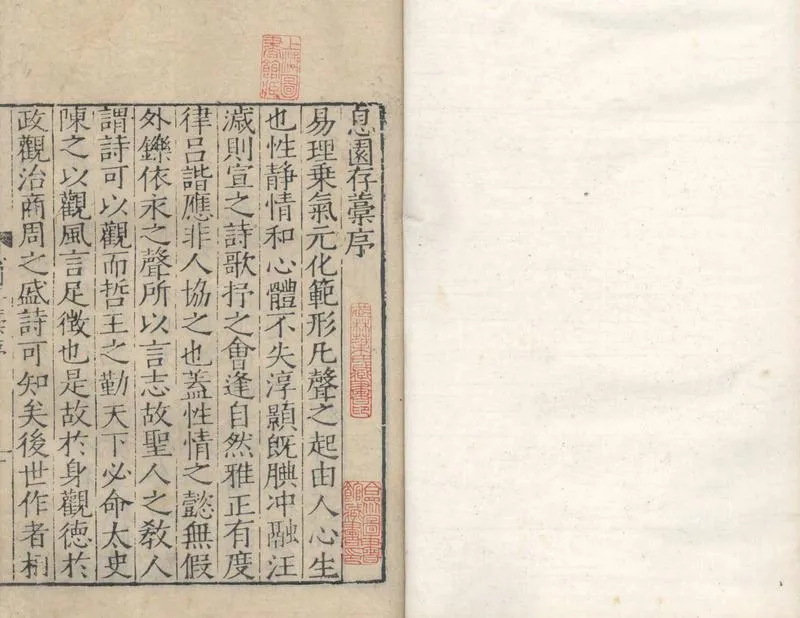 上海圖書館藏
息園存藁序
武林葉氏藏書印
合眾圖書館藏書印
易理乗氣元化範形凡聲之起由人心生
也性靜情和心體不失淳顥旣腆冲融汪
濊則宣之詩歌抒之會逢自然雅正有度
律呂諧應非人協之也蓋性情之懿無假
外鑠依永之聲所以言志故聖人之敎人
謂詩可以觀而哲王之勤天下必命太史
陳之以觀風言足徴也是故於身觀德於
政觀治商周之盛詩可知矣後世作者相